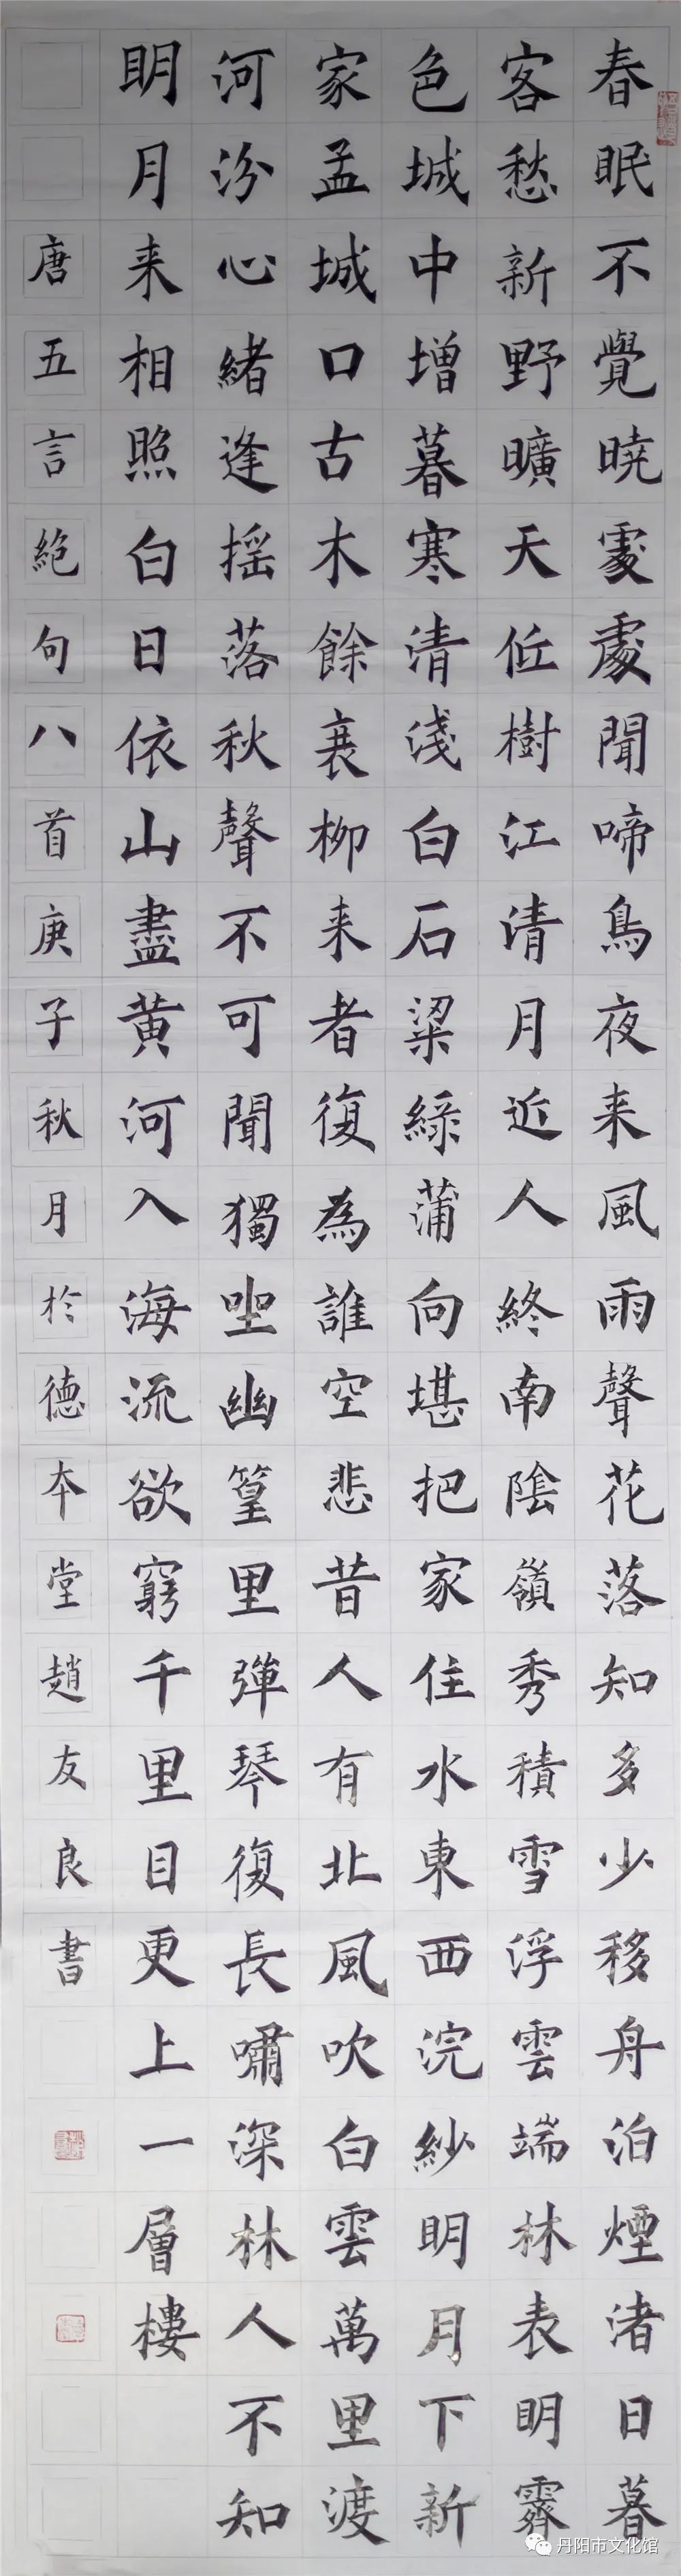 春眠不覺曉處處聞啼鳥夜来風雨聲花落知多少移舟泊煙渚日暮
客愁新野曠天低樹江清月近人終南陰嶺秀積雪浮雲端林表明霽
色城中增暮寒清淺白石梁綠蒲向堪把家住水東西浣紗明月下新
家孟城口古木餘衰柳来者復為誰空悲昔人有北風吹白雲萬里渡
河汾心緒逢摇落秋聲不可聞獨坐幽篁里彈琴復長嘯深林人不知
明月来相照白日依山盡黄河入海流欲窮千里目更上一層樓
唐五言絶句八首庚子秋月於德本堂趙友良書
丹阳市文化馆